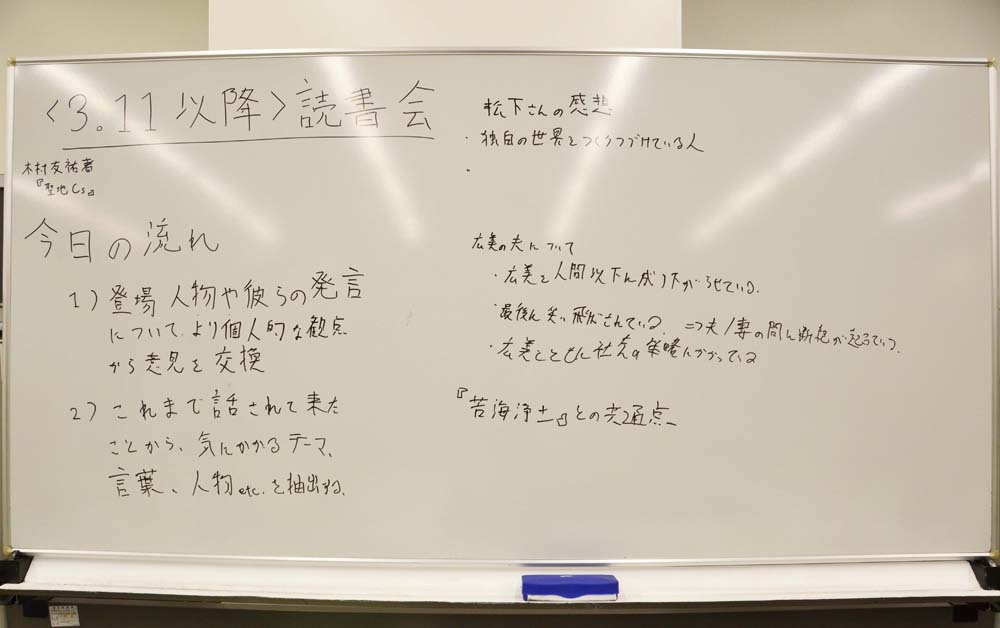 〈3.11以降〉読書会
木村友祐著
『聖地Cs』
今日の流れ
1) 登場人物や彼らの発言
について、より個人的な観点
から意見を交換
2) これまで話されて来た
ことから、気にかかるテーマ、
言葉、人物etc.を抽出する。
松下さんの感想
・独自の世界をつくりつづけている人
・
広美の夫について
・広美を人間以下に成り下がらせている。
・最後に笑い飛ばされている。⇒夫/妻の間に断絶が起っている。
・広美とともに社会の策略にかかっている
『苦海浄土』との共通点